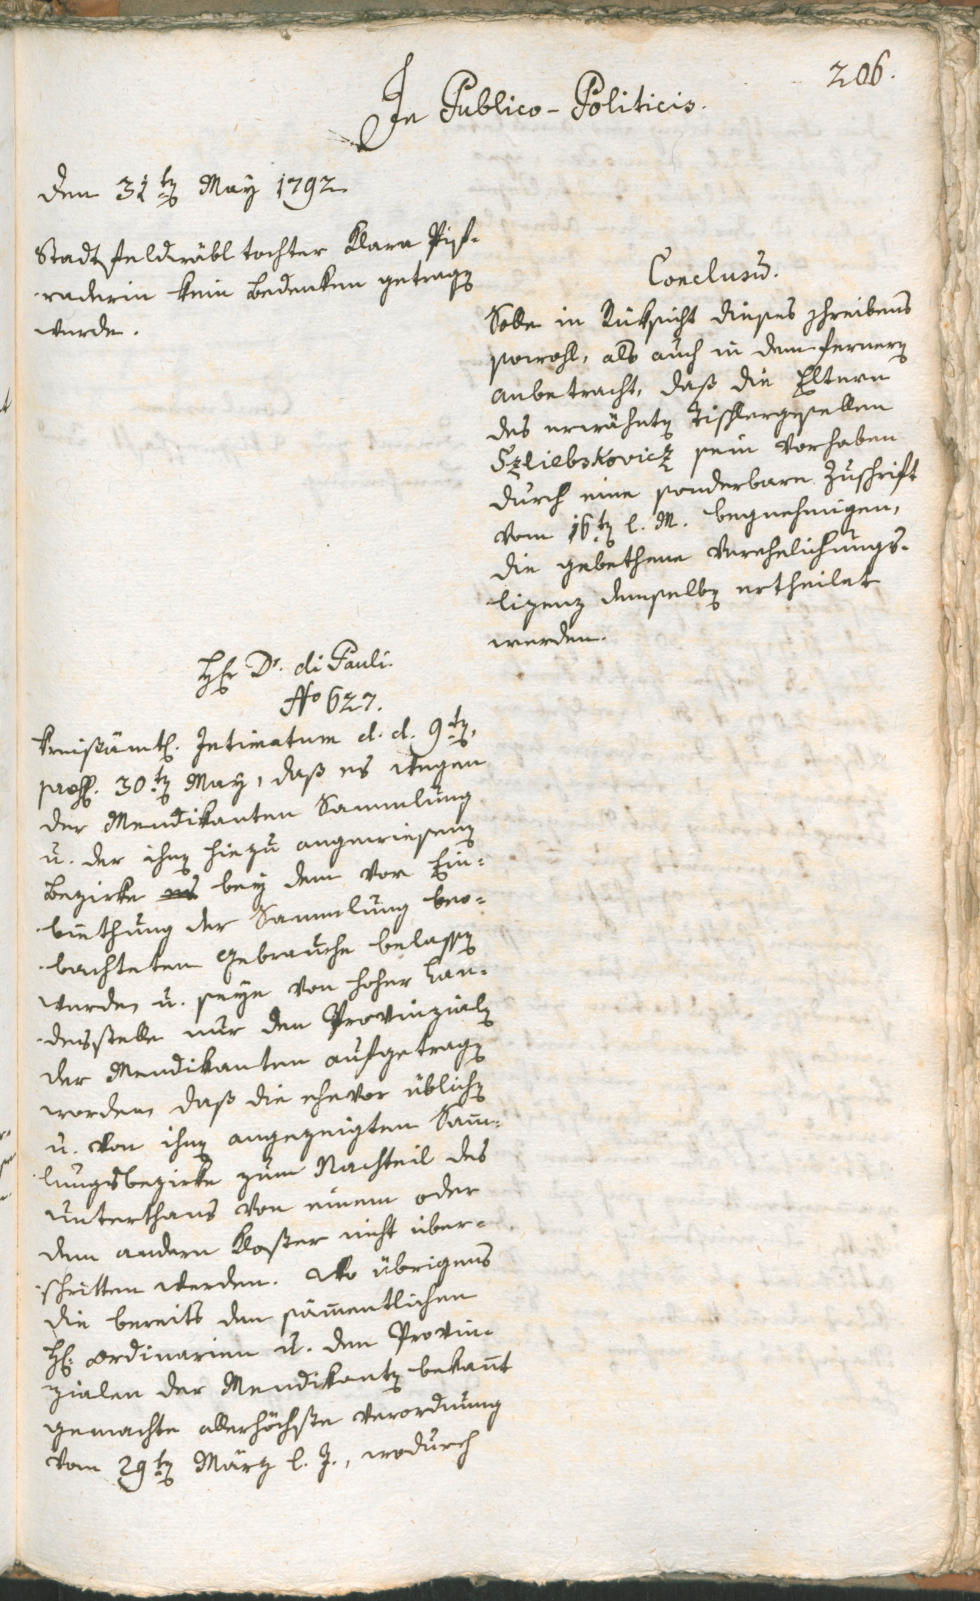 206.
In Publico-Politicis.
den 31tn May 1792
Stadt
tochter Klara
raderin kein Bedenken getragn
werde.
Conclusum.
Solle in Rüksicht dieses schreibens
sowohl, als auch in dem fernern
anbetracht, daß die Eltern
des erwähntn Tischlergesellen
Szliebskovicz sein Vorhaben
durch eine sonderbare Zuschrift
vom 16tn l. M. begnehmigen,
die gebethene Verehelichungs-
lizenz demselbn ertheilet
werden.
Hr Dr. di Pauli.
No 627.
Kreisämtl. Intimatum d. d. 9tn,
pross. 30tn May, daß es wegen
der Mendikanten Sammlung
u. der ihnn hiezu angewiesenn
Bezirke bey dem vor Ein-
biethung der Sammlung beo-
bachteten Gebrauche belassn
werde, u. seye von hoher Lan-
desstelle nur den Provinzialn
der Mendikanten aufgetragn
worden, daß die ehevor üblichn
u. von ihnn angezeigten Sam̅-
lungsbezirke zum Nachteil des
Unterthans von einem oder
dem andern Kloster nicht über-
schritten werden. Wo übrigens
die bereits den säm̅entlichen
H. Ordinarien u. den Provin-
zialen der Mendikantn bekan̅t
gemachte allerhöchste Verordnung
vom 29tn März l. J., wodurch